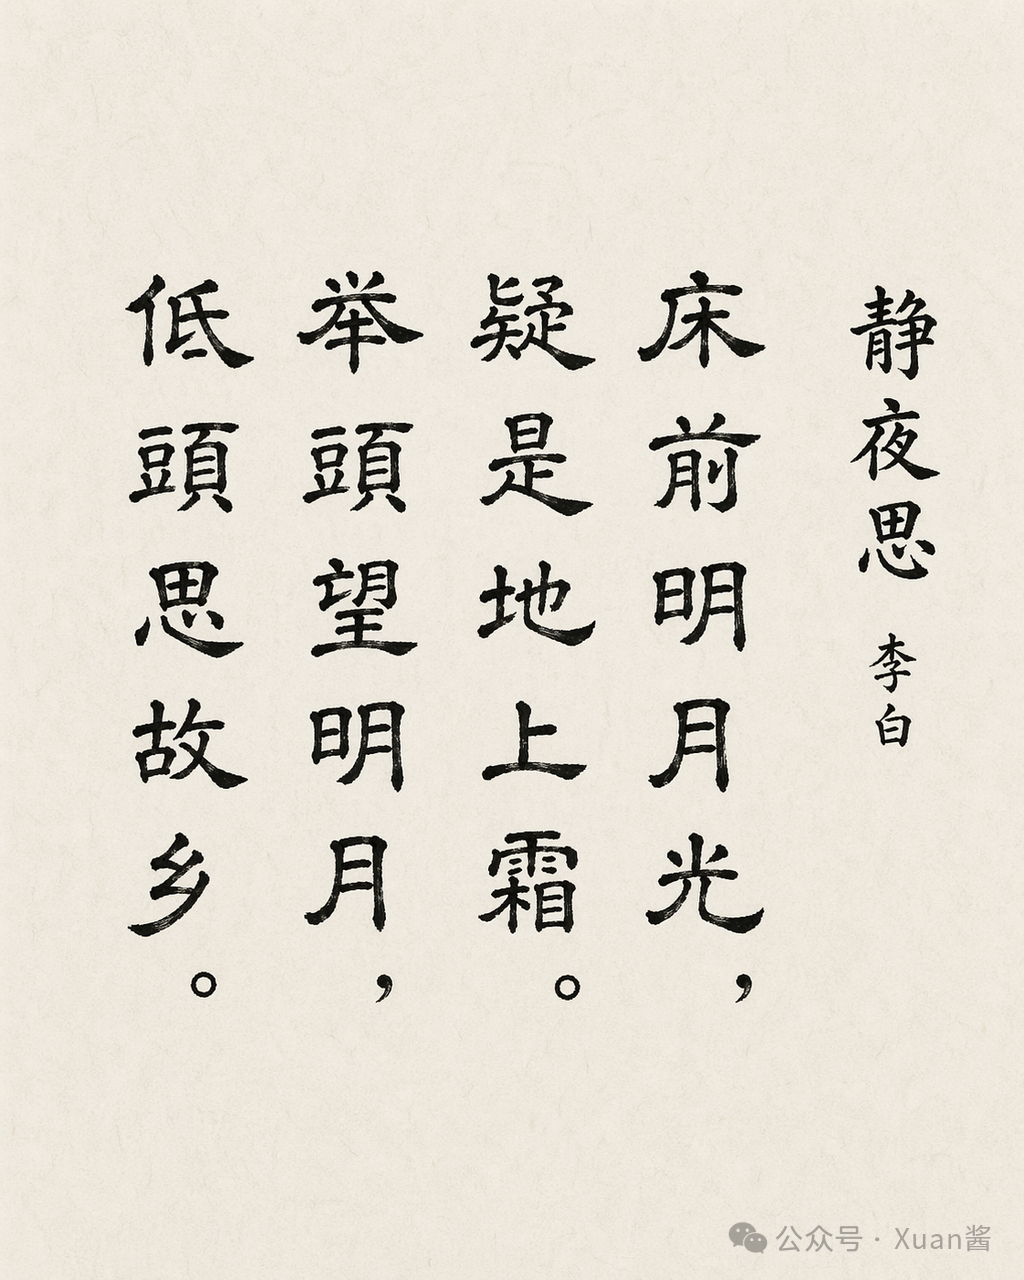 静夜思 李白
床前明月光，
疑是地上霜。
举頭望明月，
低頭思故乡。
公众号 · Xuan酱